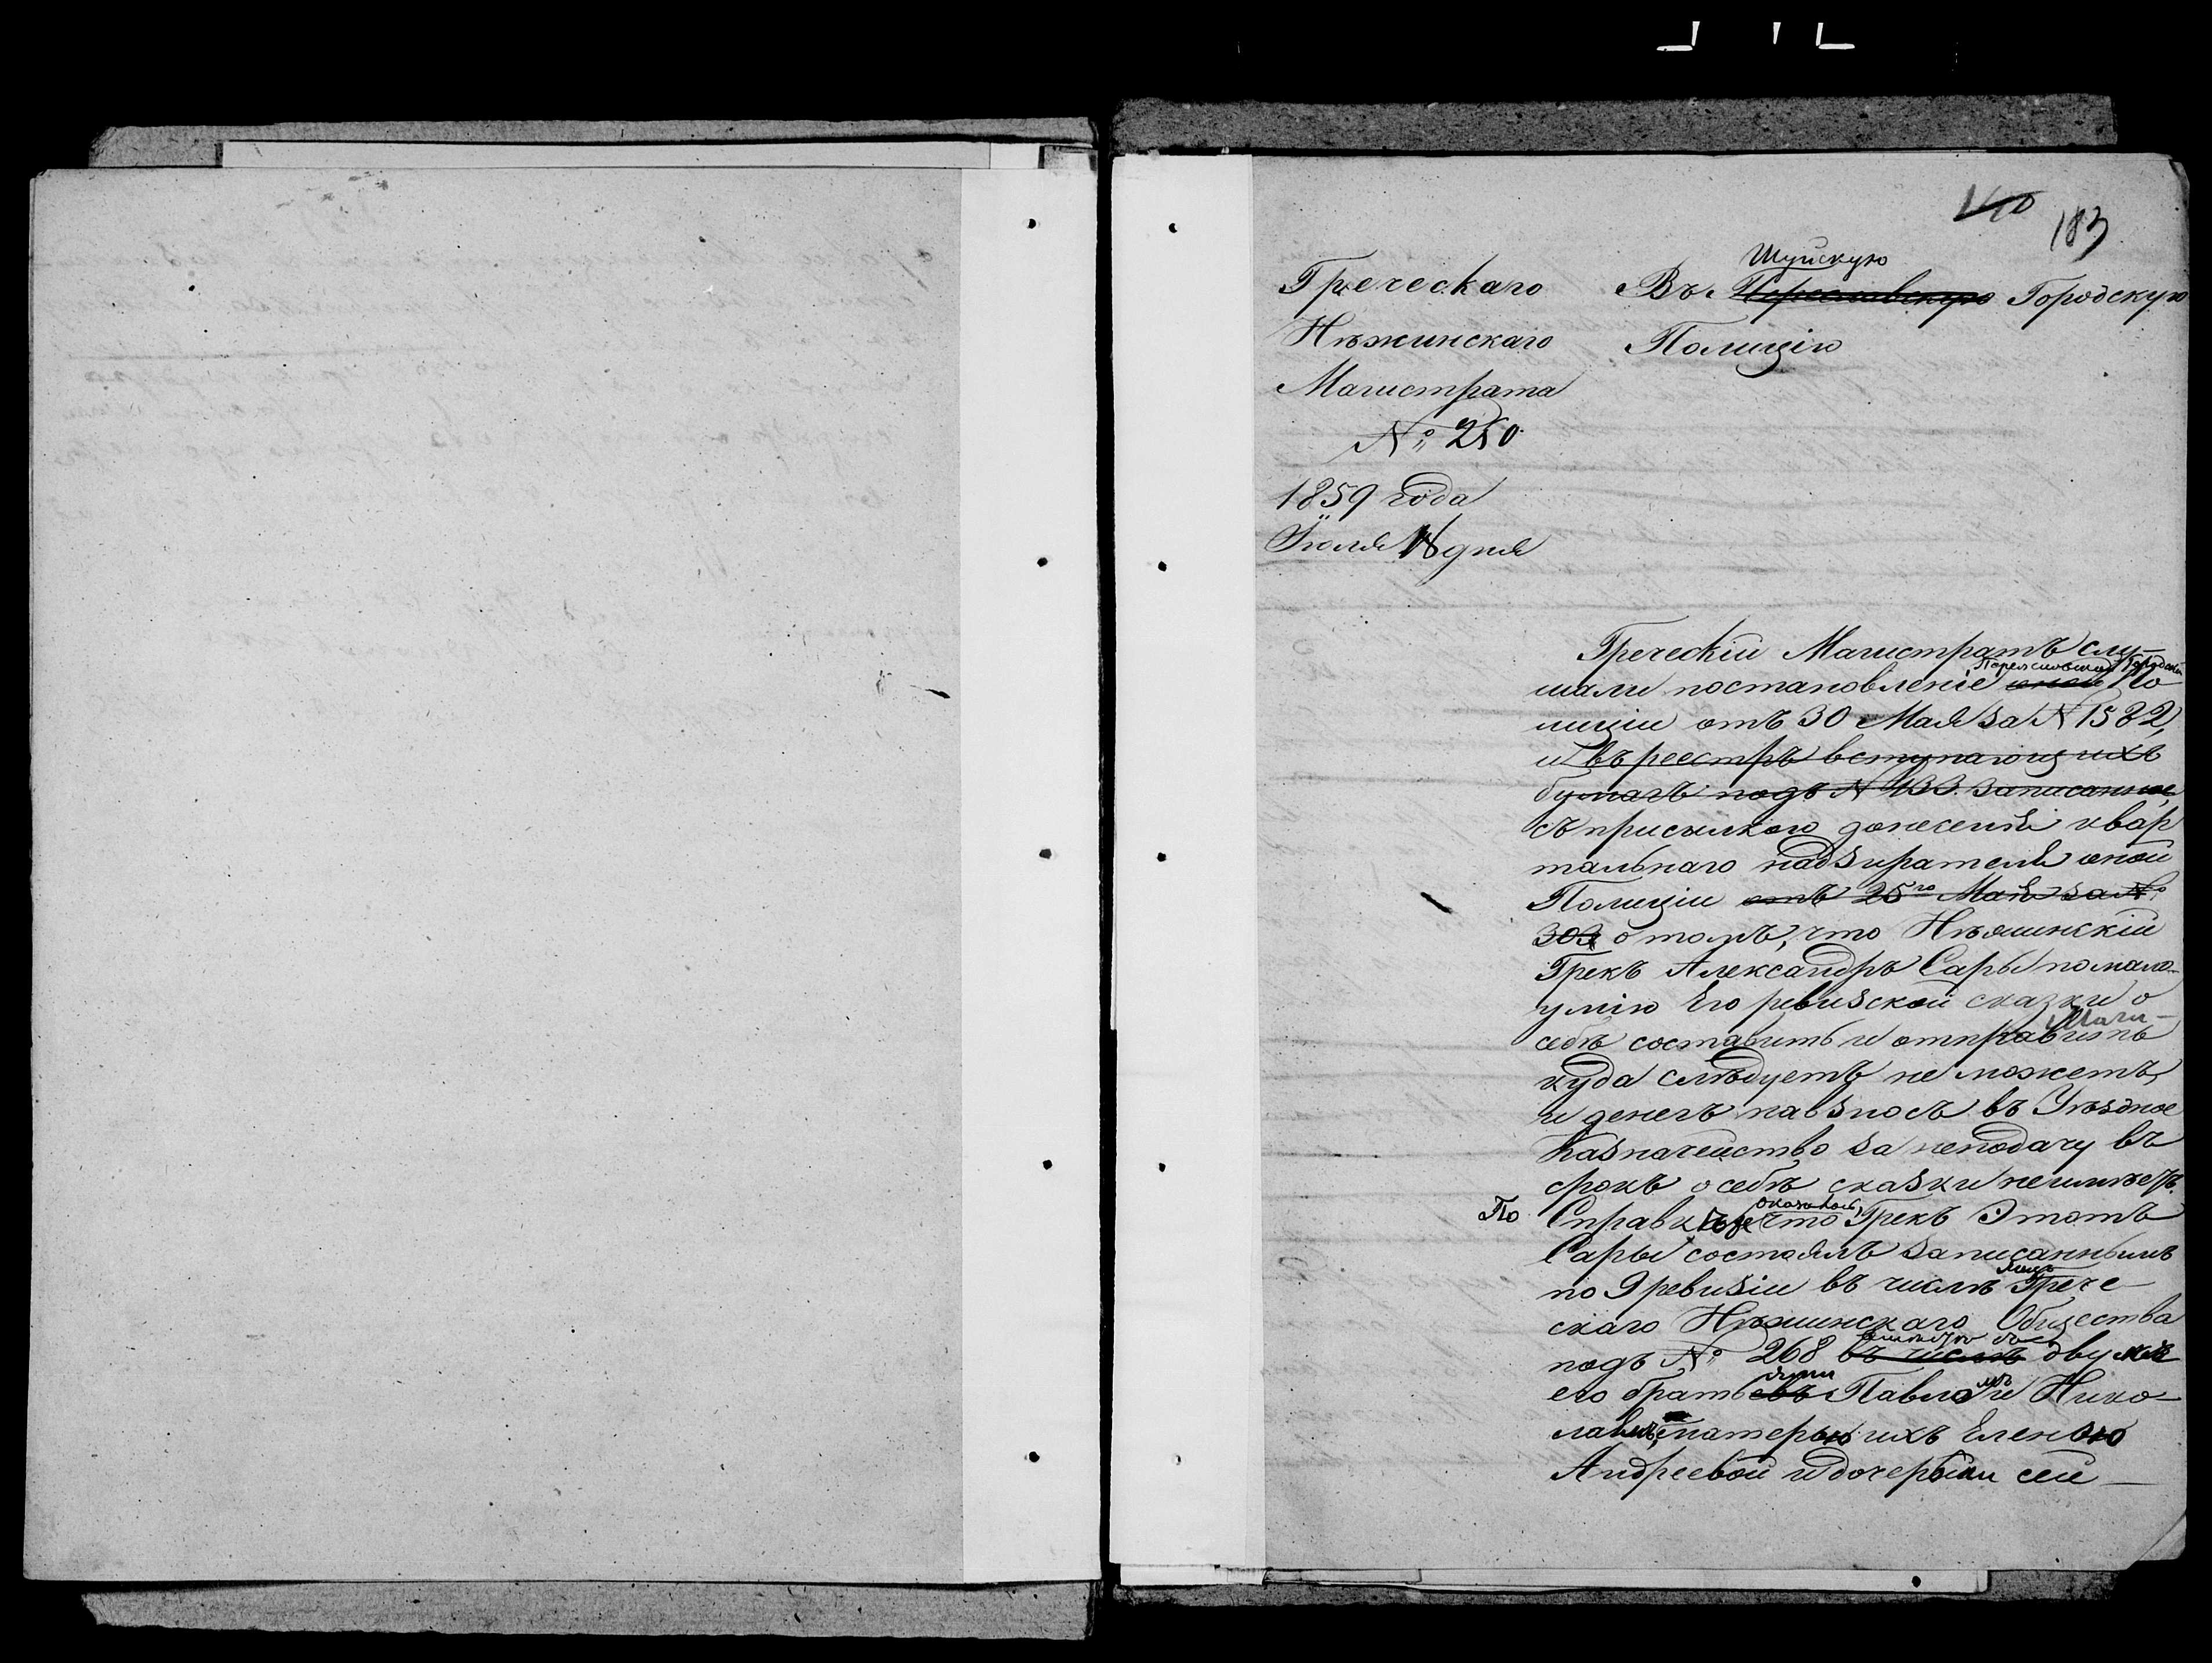 183
Греческаго
Нѣжинскаго
Магистрата
№ 250
1859 года
Іюля дня
Шуйскую
Въ Переславскую Городскую
Полицію
Греческій Магистратъ слу-
Переяславской Городской
шали постановленіе оной По
лиціи отъ 30 Мая за № 1582,
и въ реестръ вступающихъ
бумагъ подъ № 133. записанное
съ присылкою донесенія квар
тальнаго надзирателя оной
Полиціи отъ 25го Мая за №
303 о томъ, что Нѣжинскій
Грекъ Александръ Сары по мало-
умію Его ревизской сказки о
себѣ составить и отправить
куда слѣдуетъ не можетъ,
и денегъ на взносъ въ Уѣздное
Казначейство за неподачу въ
срокъ о себѣ сказки неимѣетъ.
По Справкѣ оказалось что Грекъ Этотъ
Сары состоялъ записаннымъ
по 9 ревизіи въ числѣ Грече-
скаго Нѣжинскаго Общества
подъ № 268 въ числѣ двумя
его братьями Павломъ и Нико-
лаемъ, матерью ихъ Еленою
Андреевой и дочерьми сей